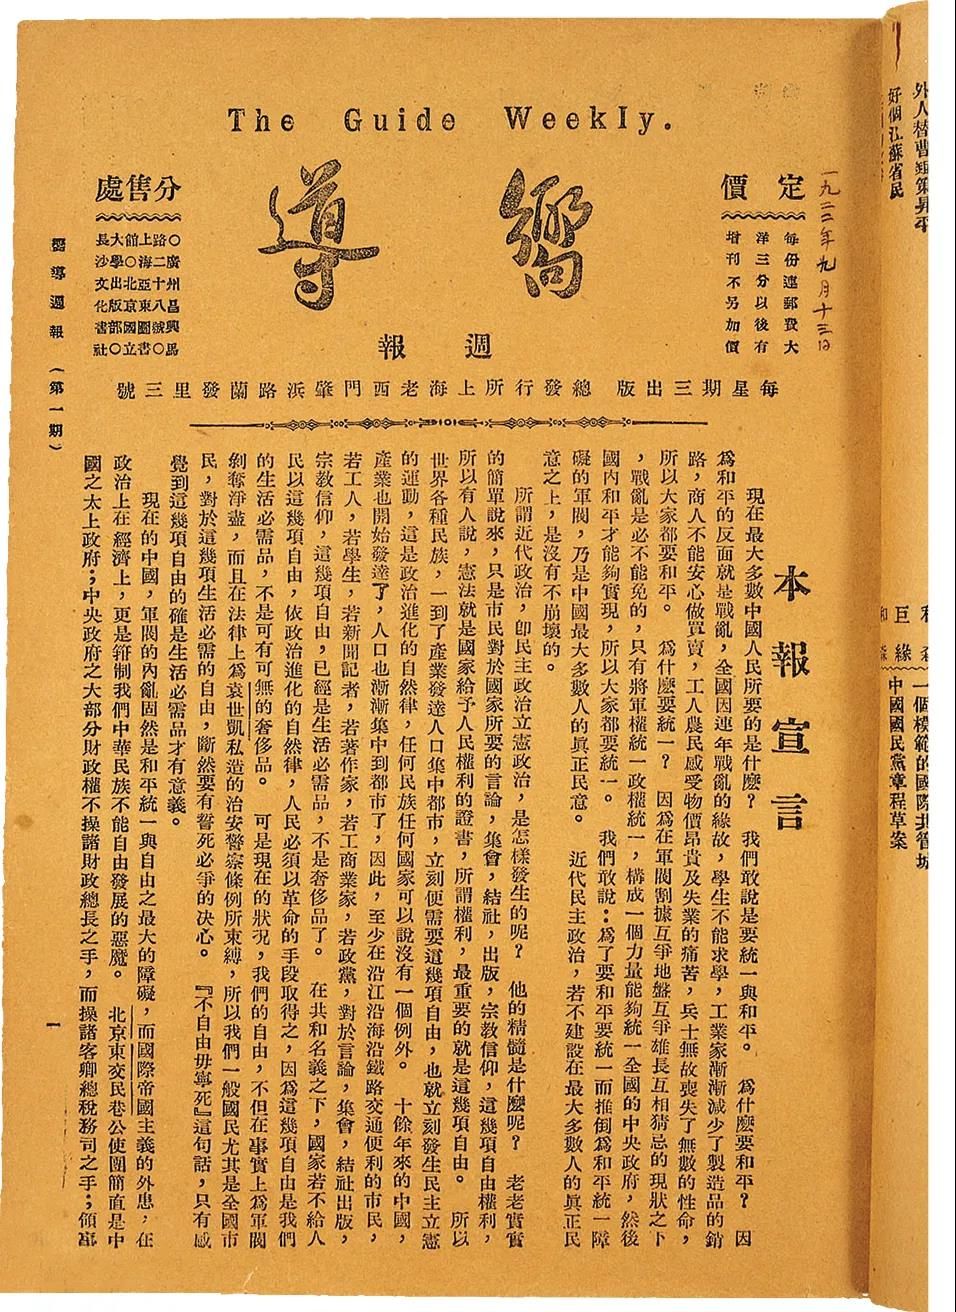 The Guide Weekly.
嚮導
週報
一九二二年九月十三日
定價
每份連郵費大
洋三分以後有
增刊不另加價
分售處
○廣州昌興馬
路二十八號○
上海亞東圖書
館○北京國立
大學出版部○
長沙文化書社
每星期三出版 總發行所上海老西門肇浜路蘭發里三號
本報宣言
現在最大多數中國人民所要的是什麽?我們敢說是要統一與和平。爲什麽要和平?因
爲和平的反面就是戰亂,全國因連年戰亂的緣故,學生不能求學,工業家漸漸減少了製造品的銷
路,商人不能安心做買賣,工人農民感受物價昂貴及失業的痛苦,兵士無故喪失了無數的性命,
所以大家都要和平。爲什麽要統一?因爲在軍閥割據互爭地盤互爭雄長互相猜忌的現狀之下
,戰亂是必不能免的,只有將軍權統一政權統一,構成一個力量能夠統一全國的中央政府,然後
國內和平才能夠實現,所以大家都要統一。我們敢說:爲了要和平要統一而推倒爲和平統一障
礙的軍閥,乃是中國最大多數人的眞正民意。近代民主政治,若不建設在最大多數人的眞正民
意之上,是沒有不崩壞的。
所謂近代政治,卽民主政治立憲政治,是怎樣發生的呢?他的精髓是什麽呢?老老實實
的簡單說來,只是市民對於國家所要的言論,集會,結社,出版,宗教信仰,這幾項自由權利,
所以有人說,憲法就是國家給予人民權利的證書,所謂權利,最重要的就是這幾項自由。所以
世界各種民族,一到了產業發達人口集中都市,立刻便需要這幾項自由,也就立刻發生民主立憲
的運動,這是政治進化的自然律,任何民族任何國家可以說沒有一個例外。十餘年來的中國,
產業也開始發達了,人口也漸漸集中到都市了,因此,至少在沿江沿海沿鐵路交通便利的市民,
若工人,若學生,若新聞記者,若著作家,若工商業家,若政黨,對於言論,集會,結社出版,
宗教信仰,這幾項自由,已經是生活必需品,不是奢侈品了。在共和名義之下,國家若不給人
民以這幾項自由,依政治進化的自然律,人民必須以革命的手段取得之,因爲這幾項自由是我們
的生活必需品,不是可有可無的奢侈品。可是現在的狀況,我們的自由,不但在事實上爲軍閥
剝奪淨盡,而且在法律上爲袁世凱私造的治安警察條例所束縛,所以我們一般國民尤其是全國市
民,對於這幾項生活必需的自由,斷然要有誓死必爭的決心。『不自由毋寧死』這句話,只有感
覺到這幾項自由的確是生活必需品才有意義。
現在的中國,軍閥的內亂固然是和平統一與自由之最大的障礙,而國際帝國主義的外患,在
政治上在經濟上,更是箝制我們中華民族不能自由發展的惡魔。北京東交民巷公使團簡直是中
國之太上政府;中央政府之大部分財政權不操諸財政總長之手,而操諸客卿總稅務司之手;領事
嚮導週報(第一期)
一
外人替曹錕策昇平
好個江蘇省民
一個模範的國際共管城
中國國民黨章程草案